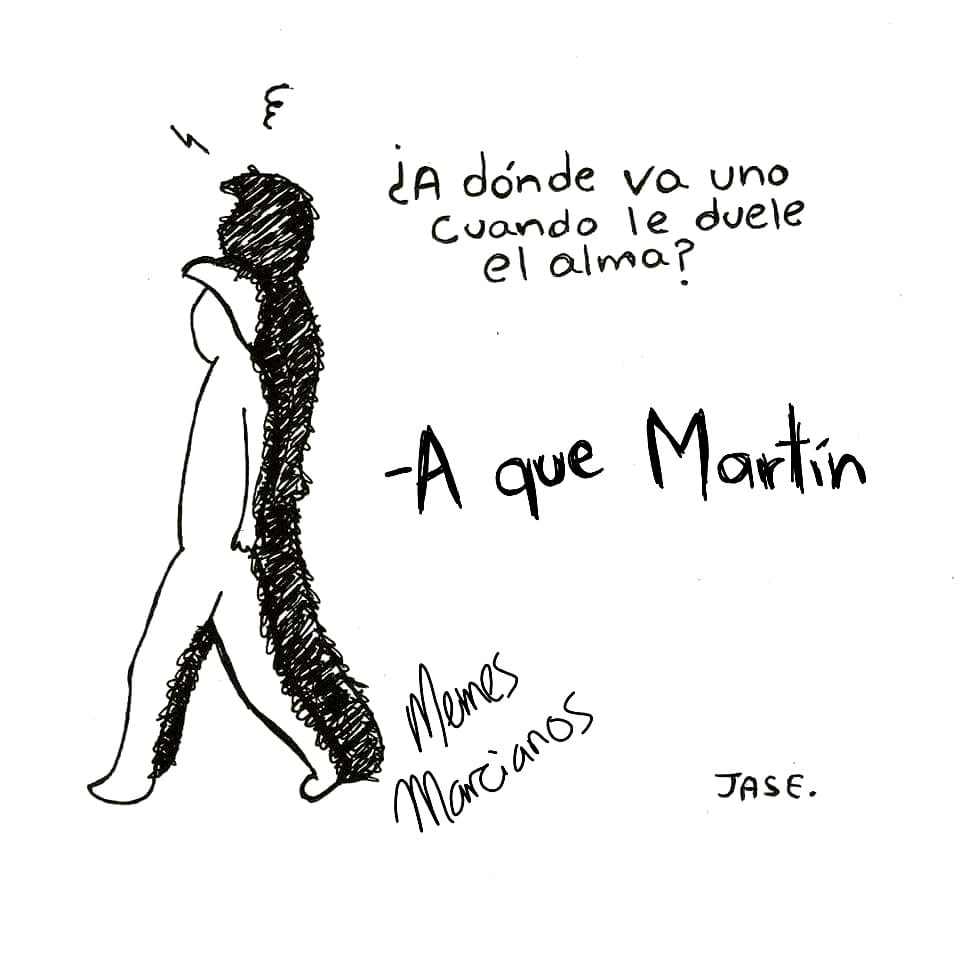 ¿A dónde va uno
cuando le duele
el alma?
-A que Martín
Memes
Marcianos
JASE.